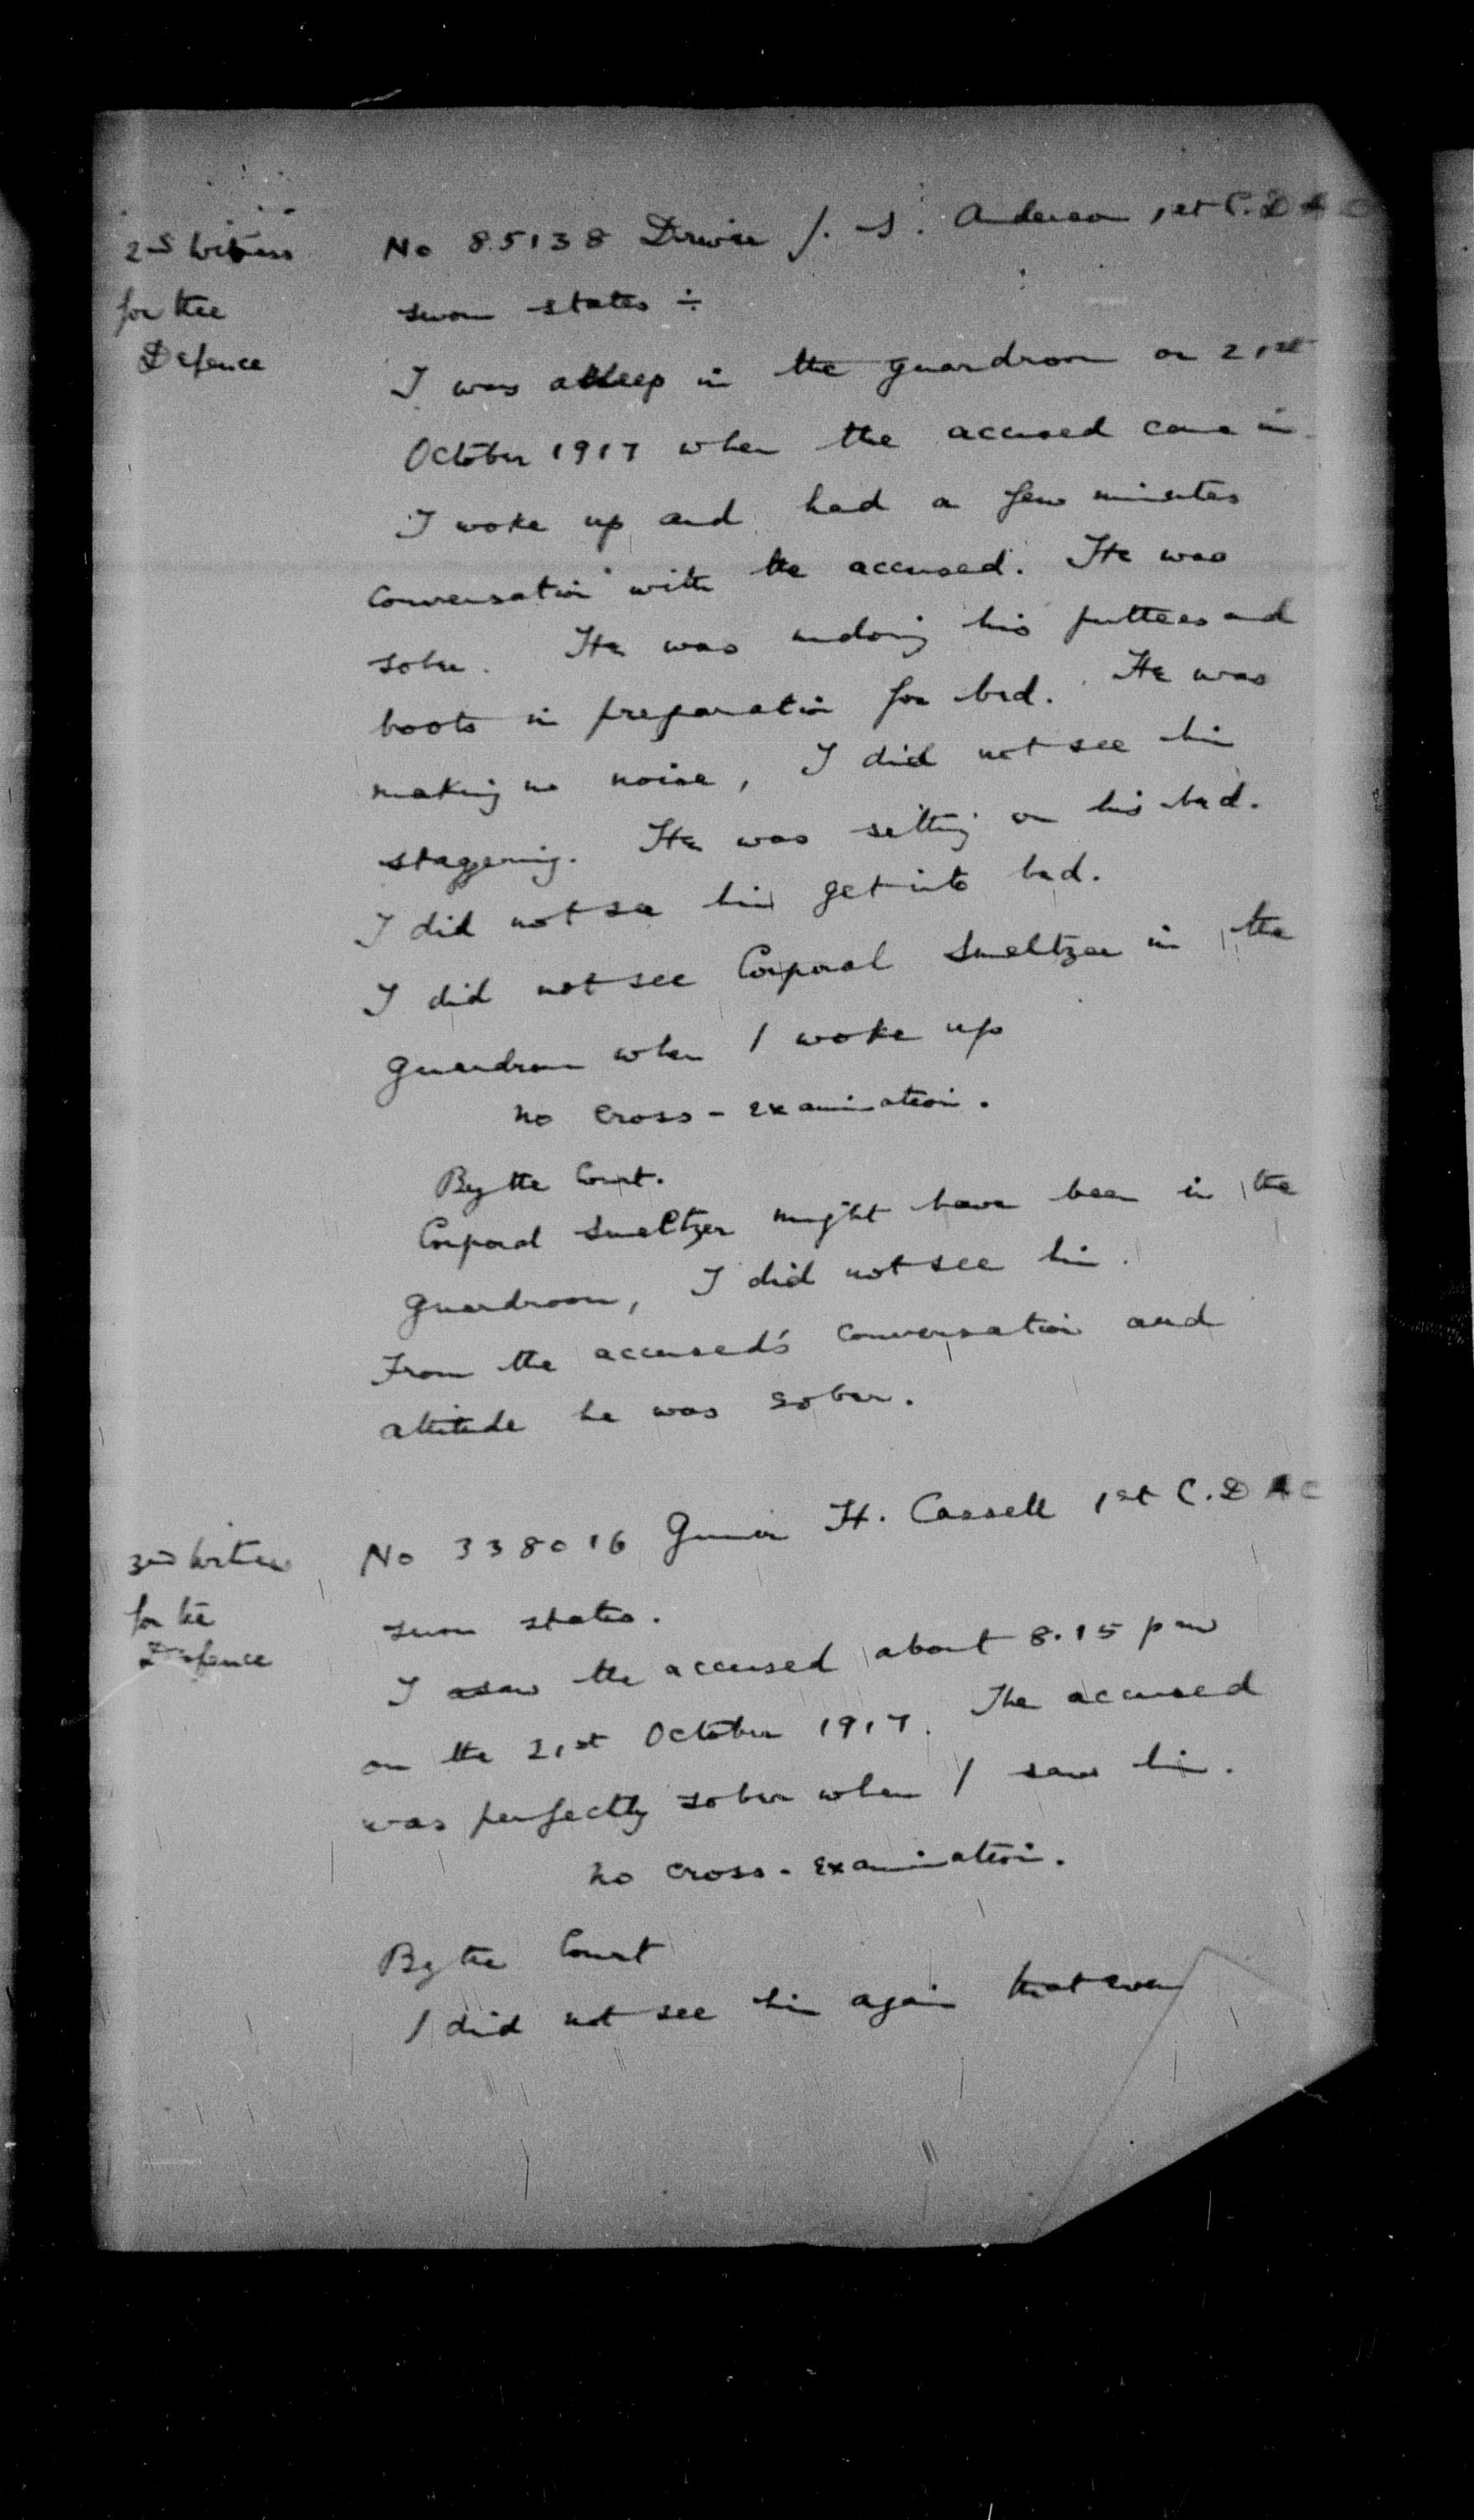 2nd Witness
for the
Defence
No 85138 Driver J. S. Anderson 1st C.D.A.C
sworn states :-
I was asleep in the guardroom on 21st
October 1917 when the accused came in.
I woke up and had a few minutes
conversation with the accused. He was
sober. He was undoing his puttees and
boots in preparation for bed. He was
making no noise, I did not see him
staggering. He was sitting on his bed.
I did not see him get into bed.
I did not see Corporal Smeltzer in the
guardroom when I woke up
No cross-examination.
By the Court.
Corporal Smeltzer might have been in the
guardroom, I did not see him.
From the accused's conversation and
attitude he was sober.
3rd Witness
for the
Defence
No 338016 Gunner H. Cassell 1st C.D.A.C
sworn states.
I saw the accused about 8.15 pm
on the 21st October 1917. The accused
was perfectly sober when I saw him.
No cross-examination.
By the Court
I did not see him again that